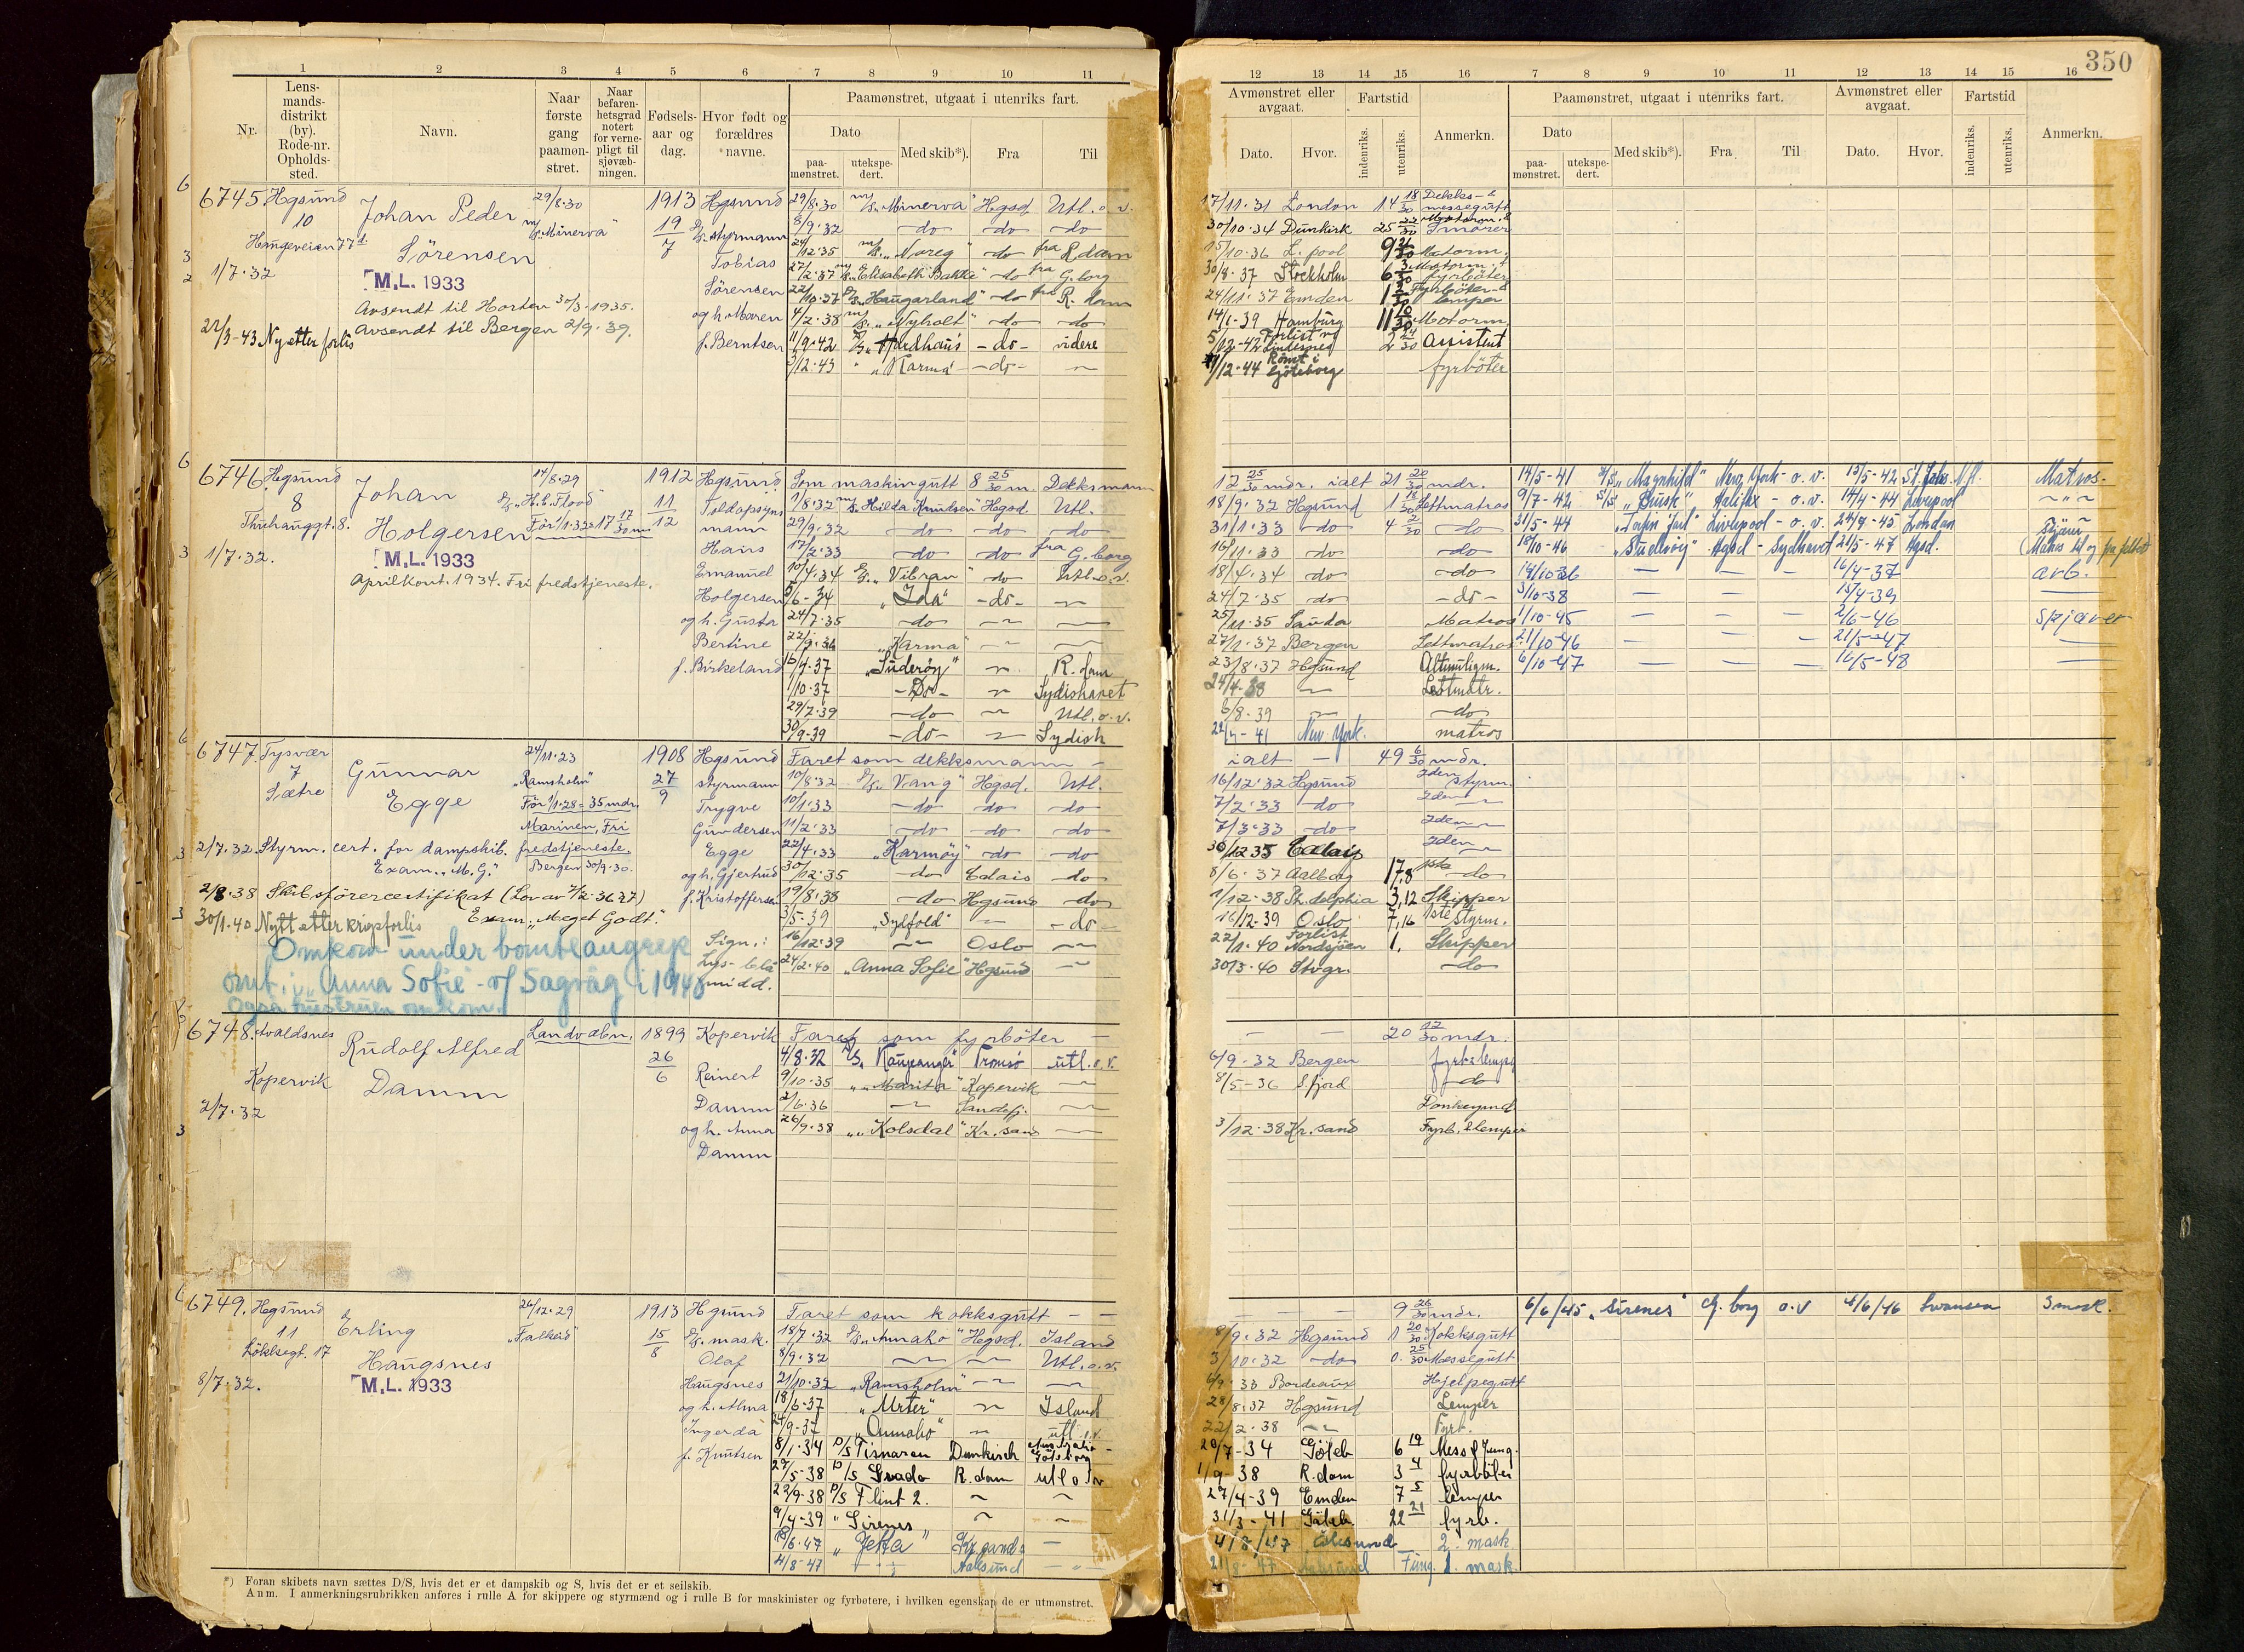 350
1 2 3 4 5 6 7 8 9 10 11
12 13 14 15 16 7 8 9 10 11 12 13 14 15 16
Nr.
Lens-
mands-
distrikt
(by).
Rode-nr.
Opholds-
sted.
Navn.
Naar
første
gang
paamøn-
stret.
Naar
befaren-
hetsgrad
notert
for verne-
pligt til
sjøvæb-
ningen.
Fødsels-
aar og
dag.
Hvor født og
forældres
navne.
Paamønstret, utgaat i utenriks fart.
Dato
paa-
mønstret.
utekspe-
dert.
Med skib*).
Fra
Til
Avmønstret eller
avgaat.
Dato. Hvor.
Fartstid
indenriks.
utenriks.
Anmerkn.
Paamønstret, utgaat i utenriks fart.
Dato
paa-
mønstret.
utekspe-
dert.
Med skib*).
Fra
Til
Avmønstret eller
avgaat.
Dato. Hvor.
Fartstid
indenriks.
utenriks.
Anmerkn.
6745 Hgsund
10
Haugeveien 77
1/7.32
Johan Peder
Sörensen
M.L. 1933
Avsendt til Horten 30/3.1935.
Avsendt til Bergen 2/9.39.
22/3-43 Ny etter forlis
29/8.30
m/s. "Minerva"
1913
19/7
Hgsund
styrmann
Tobias
Sörensen
og h. Maren
f. Berntsen
29/8.30 m/s. "Minerva" Hgsd. Utl. o. v. 17/11.31 London 14 18/30 Dekks- &
messegutt
8/9.32 do do do 30/10.34 Dunkirk 25 Motorm. &
Smörer
24/12.35 m/s. "Noreg" do fra R.dam 15/10.36 L.pool 9 Motorm.
27/2.37 m/s. "Elisabeth Bakke" do fra G.borg 30/8.37 Stockholm 6 Motorm. &
fyrböter
22/10.37 D/s. "Haugarland" do fra R.dam 24/11.37 Emden 1 Fyrböter &
lemper
4/2.38 m/s. "Nyholt" do do 14/1-39 Hamburg 11 Motorm.
11/9.42 D/s "Hedhaus" -do- videre 5/12-42 Forlist v/
Lindesnes 2 Assistent
2/12.43 " "Karma" -do- 17/12.44 Römt i
Gjöteborg fyrböter
6746 Hgsund
8
Thuhauggt. 8.
1/7.32.
Johan
Holgersen
M.L. 1933
April kont. 1934. Fri fredstjeneste.
14/8.29
D/s. "H.C. Flood"
För 1/1.32 = 17 17/30 m
1912
11/12
Hgsund
Toldopsyns
mann
Hans
Emanuel
Holgersen
og h. Gusta
Bertine
f. Birkeland
Som maskingutt 8 25/30 m. Dekksmann 12 25/30 mdr. ialt 21 20/30 mdr.
1/8.32 m/s. "Hilda Knudsen" Hgsd. Utl. 18/9.32 Hgsund 1 18/30 Lettmatros
29/9.32 do do do 31/1.33 do 4 2/30 do
17/2.33 do do fra G.borg 16/11.33 do do
10/4.34 D/s. "Vibran" do Utl. o. v. 18/4.34 do do
5/6-34 "Ida" -do- 24/7.35 do -do-
24/7.35 do 25/11.35 Sauda Matros
22/9.36 "Karma" 27/1.37 Bergen Lettmatros
16/4.37 "Suderöy" R.dam 23/8.37 Hgsund Altmuligm.
1/10.37 -Do- Sydishavet 24/4-38 Lettmatr.
29/7.39 -do- Utl. o. v. 6/8.39 do
30/9-39 -do- Sydish 22/4-41 New York. matros
14/5-41 "Magnhild" New York - o. v. 13/5-42 St. Johs N.f. Matros-
9/7-42 "Busk" Halifax - o. v. 14/4-44 Liverpool
31/5-44 Liverpool - o. v. 24/7-45 London
18/10-46 "Suderöy" Hgsd - Sydhavet 21/5-47 Hgsd. (Matros til og fra feltet
14/10-36 16/4-37 arb.
3/10-38 15/4-39
1/10-45 2/6-46 Skjæver
21/10-46 21/5-47
6/10-47 16/5-48
6747. Tysvær
7
Sætre
Gunnar
Egge
24/11.23
"Ramsholm"
För 1/1.28 = 35 mdr.
Marinen, Fri
fredstjeneste.
Bergen 30/9.30.
1908
27/9
Hgsund
styrmann
Trygve
Gundersen
Egge
og h. Gjertrud
f. Kristoffersen
2/7.32. Styrm. cert. for dampskib.
Exam. "M.G."
2/8.38 Skibsförercertifikat (Lov av 7/2.36 27)
Exam. "Meget Godt."
30/1.40 Nytt etter krigsforlis
Omkom under bombeangrep
omb. i "Anna Sofie" v/ Sagvåg i 1940
Også hustruen omkom.
Sign.:
Lys-blå
midd.
Faret som dekksmann ialt - 49 6/30 mdr.
10/8.32 D/s. "Vang" Hgsd. Utl. 16/12.32 Hgsund 2den styrm.
10/1.33 do do do 7/2.33 do 2den
11/2.33 do do do 7/3.33 do 2den
22/4.33 "Karmöy" do do 30/12 35 Calais 2den
30/12.35 do Calais do 8/6.37 Aalborg 17,8 1ste do
19/8.38 do Hgsund do 1/12.38 Ph.delphia 3,12 Skipper
3/5.39 "Sylfold" do 16/12.39 Oslo 7,16 1ste styrm.
16/12.39 Oslo 22/1.40 Forlist
Nordsjöen 1, Skipper
24/2.40 "Anna Sofie" Hgsund 30/3.40 Stvgr. do
6748. Avaldsnes
Kopervik
2/7.32
Rudolf Alfred
Damm
Landværn.
1899
26/6
Kopervik
Reinert
Damm
og h. Anna
Damm
Faret som fyrböter 20 12/30 mdr.
4/8.32 D/s. "Kaupanger" Tromsö utl. o. v. 6/9-32 Bergen fyrb & lemper
9/10.35 " "Marita" Kopervik 8/5-36 S.fjord do
2/6.36 Sandefj. Donkeymd
26/9.38 " "Kolsdal" Kr.sand 3/12.38 Kr.sand Fyrb. & lemper
6749. Hgsund
11
Löklsegt. 17
8/7.32.
Erling
Haugsnes
M.L. 1933
26/12.29
"Falkeid"
1913
15/8
Hgsund
D/s. mask.
Olaf
Haugsnes
og h. Alma
Ingerda
f. Knutsen
Faret som kokksgutt 9 26/30 mdr.
18/7.32 D/s. "Annaho" Hgsd. Island 8/9.32 Hgsund 1 20/30 Kokksgutt
8/9.32 Utl. o. v. 3/10.32 do 0. 25/30 Messegutt
21/10.32 "Ramsholm" 6/9.33 Bordeaux Hjelpegutt
18/6.37 "Urter" Island 28/8.37 Hgsund Lemper
24/9-37 "Annaho" utl. o. v. 22/2.38 Fyrb.
8/1.34 D/S Tisnaren Dunkirch Australia-
Göteborg 20/7-34 Göteb 6 19 Mess & Jung.
27/5-38 D/S Svado R.dam utl o v 1/9-38 R.dam 3 4 fyrböter
22/9-38 D/S Flint 2. 27/4-39 Emden 7 5 lemper
9/4-39 " Sirenes 31/3-41 Göteb. 22 21 fyrb.
13/6.47 " "Jetta" 4/8/47 Ålesund 2. mask.
4/8-47 Aalesund 21/8-47 Aalesund Fung. 1. mask.
6/6/45 "Sirenes" G.borg o.v 4/6/46 Swansea 3 mask.
*) Foran skibets navn sættes D/S, hvis det er et dampskib og S, hvis det er et seilskib.
Anm. I anmerkningsrubrikken anføres i rulle A for skippere og styrmænd og i rulle B for maskinister og fyrbøtere, i hvilken egenskap de er utmønstret.